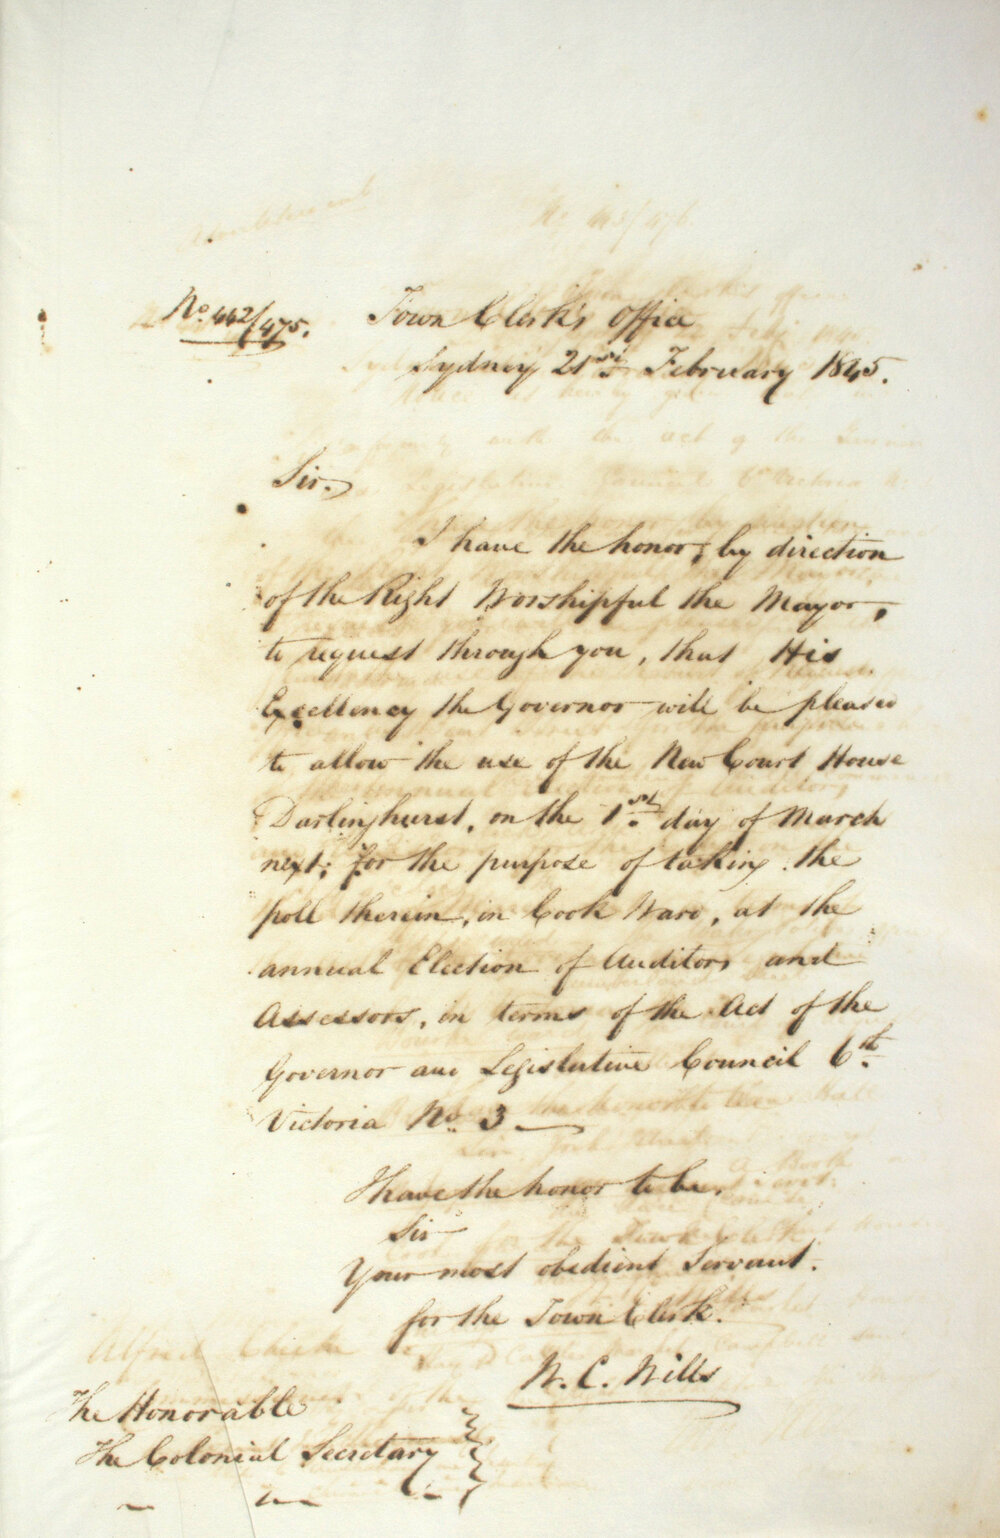 No. 442/475.
Town Clerk's Office
Sydney 21st February 1845.
Sir.
I have the honor, by direction
of the Right Worshipful the Mayor,
to request through you, that His
Excellency the Governor will be pleased
to allow the use of the New Court House
Darlinghurst, on the 1st day of March
next; for the purpose of taking the
poll therein, in Cook Ward, at the
annual Election of Auditors and
Assessors, in terms of the Act of the
Governor and Legislative Council 6th
Victoria No. 3
I have the honor to be.
Sir
Your most obedient Servant.
for the Town Clerk.
W. C. Wills
The Honorable
The Colonial Secretary